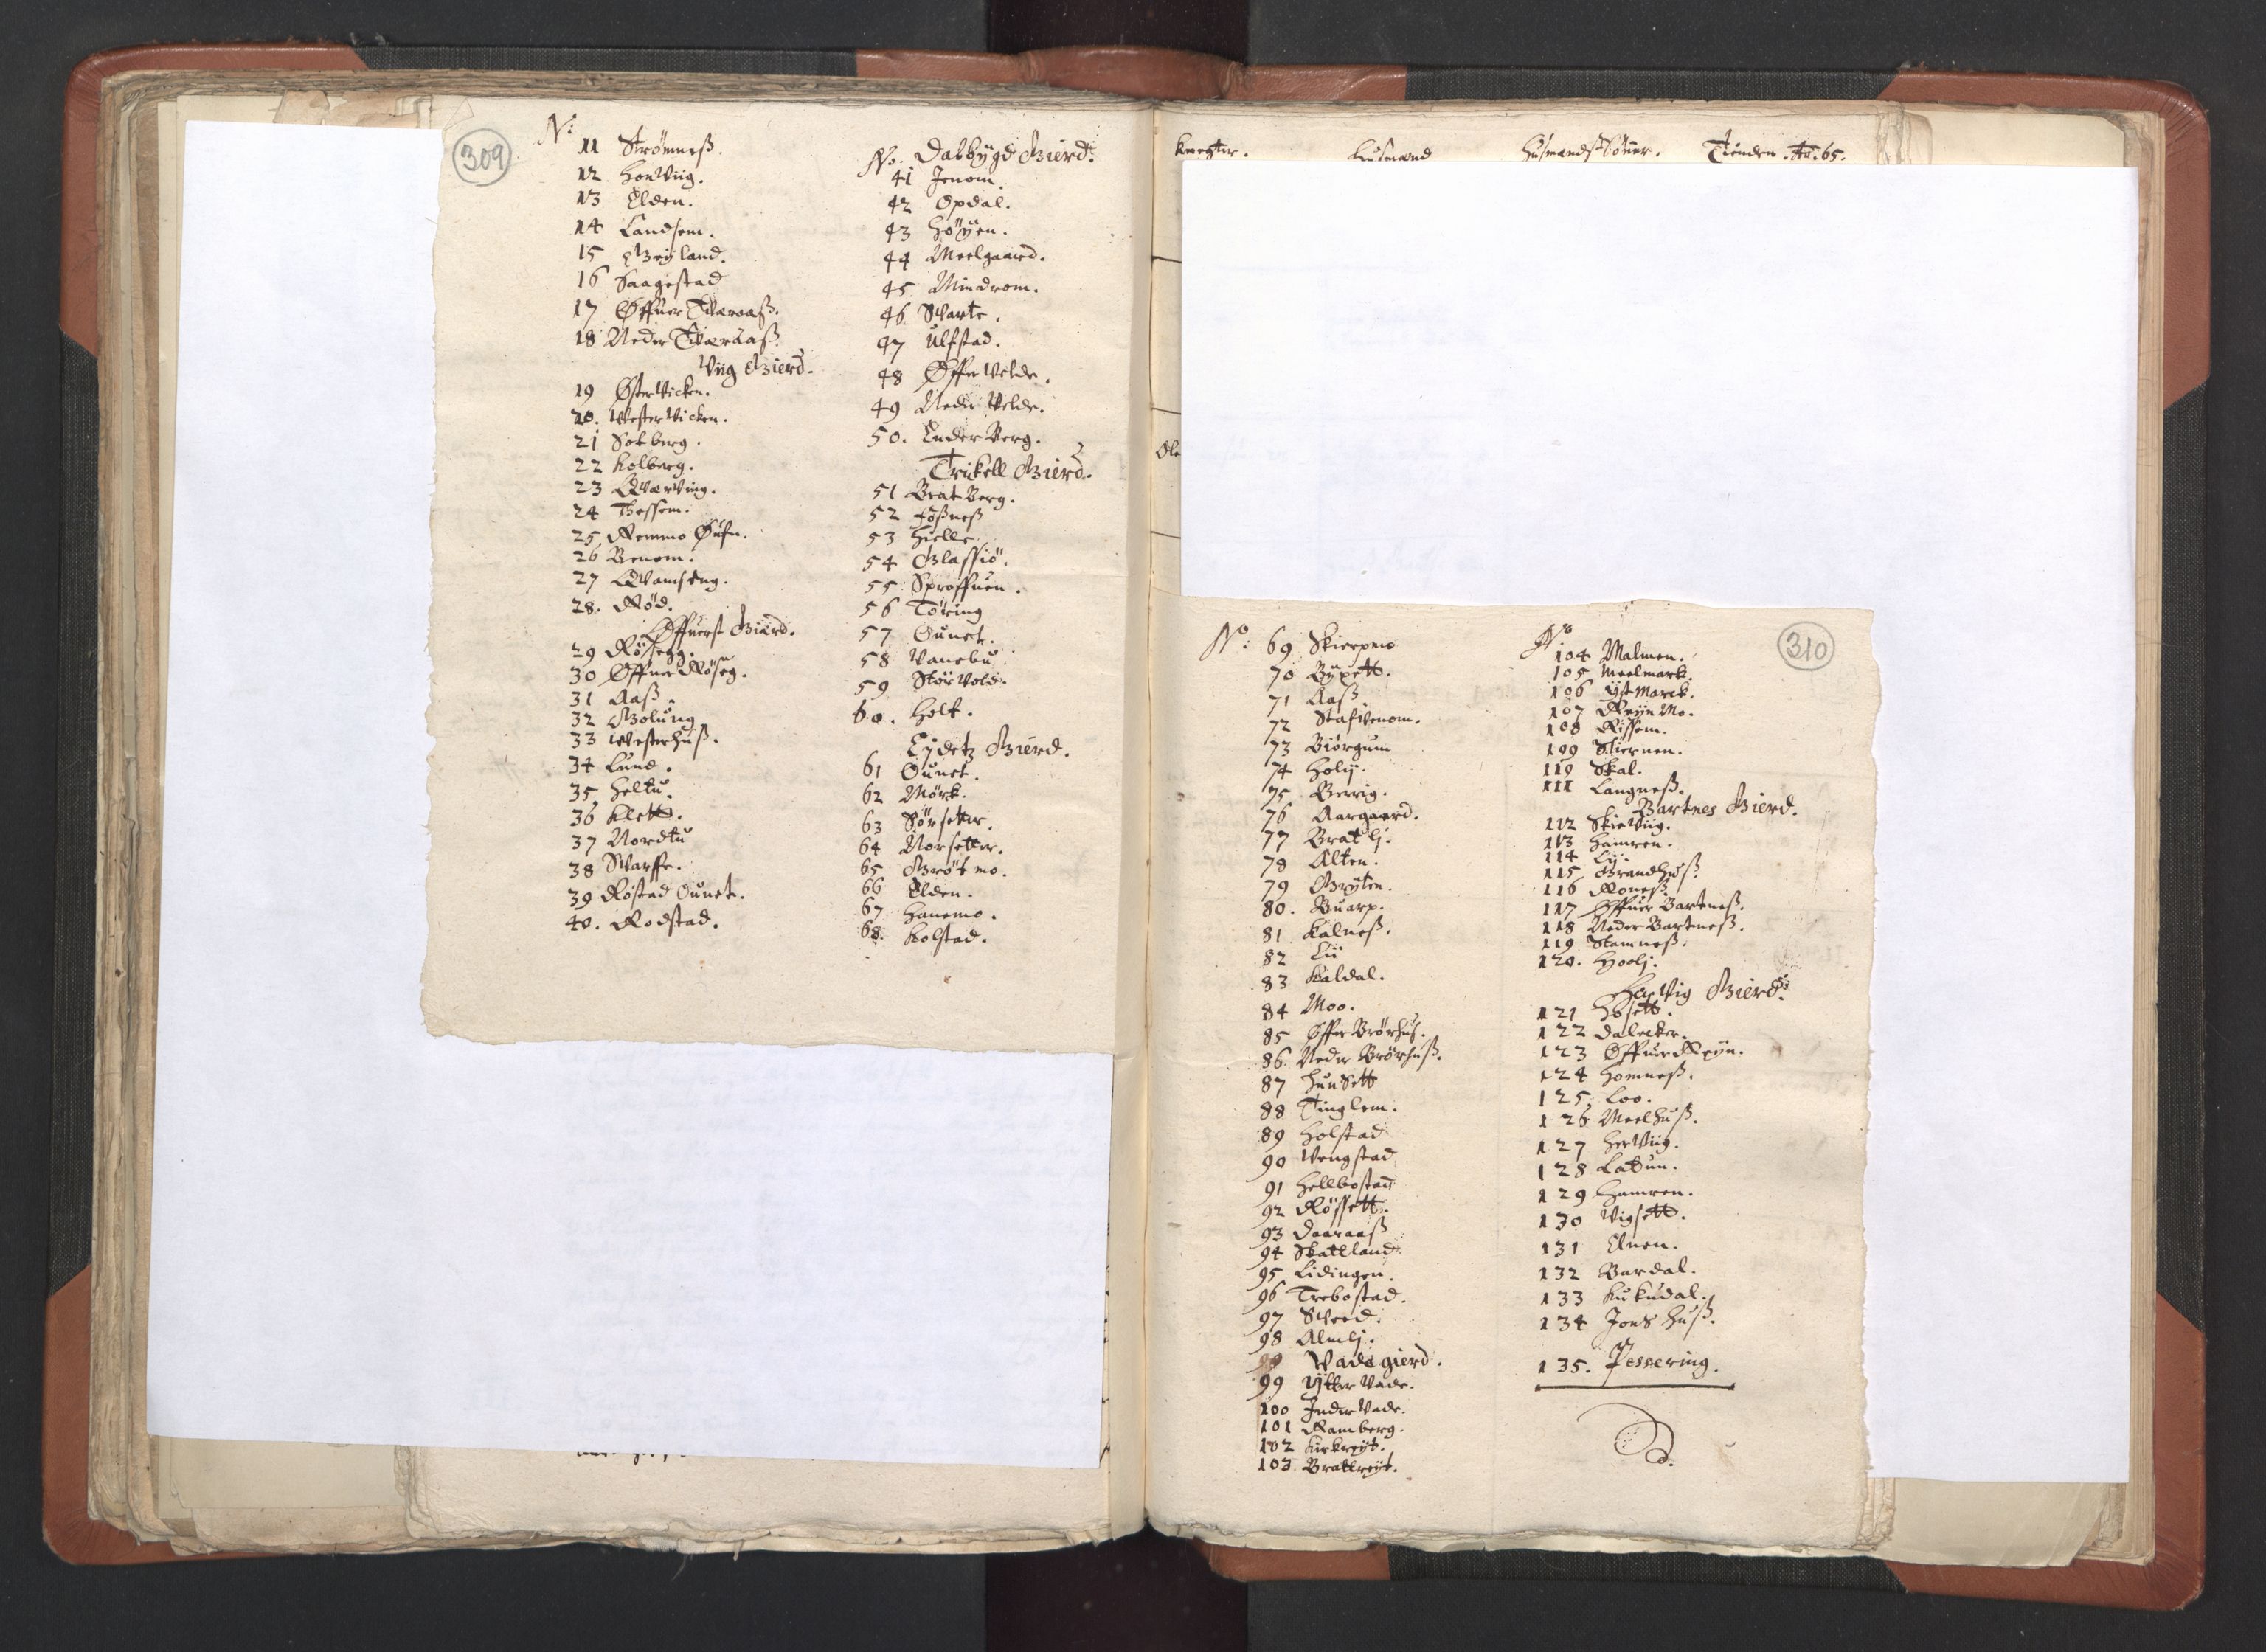 309
N:
11 Strömneß.
12 HonViig.
13 Elden.
14 Landsem.
15 Bryland.
16 Haagestad
17 Øffuer Tværaaß.
18 Neder Tværaaß.
Viig Gierd.
19 ØsterVicken.
20. WesterVicken.
21 Solberg.
22 Kolberg.
23 QværVing.
24 Thessem.
25. Remmo Øufn.
26 Benom.
27 Qvamseng.
28. Rød.
Øffuerst Gierd.
29 Røsegg.
30 Øffuer Røseg.
31 Aaß.
32 Bolung
33 Westerhuß.
34 Lund.
35. Heltu.
36 Klett.
37 Nordtu
38 Svarffe.
39 Røstad Ounet.
40. Rodstad.
No. Dalbygd Gierd.
41 Jenom.
42 Opdal.
43 Høyen.
44 Meelgaard.
45 Mindrom.
46 Svarte.
47 Ulfstad.
48 Øffr Velde.
49 Neder Velde.
50. Ender Berg.
Trickell Gierd.
51 Brat Berg.
52 Foßneß
53 Hielle.
54 Glassiö.
55 Sproffuen.
56 Töring
57 Ounet.
58 Vanebu
59 StorVold.
60. Holt.
Eydetz Gierd.
61 Ounet.
62 Mørk.
63 Sørsetter.
64 Norsetter.
65 Grøtmo.
66 Elden.
67 Hanemo.
68. Kolstad.
Knegter. Husmænd HusmandsSønner. Tienden. Ao. 65.
Ole
310
No: 69 Skierpmo
70 Byxett.
71 Aaß.
72 Stafvenom.
73 Biörgum
74 Holy.
75 Berrig.
76 Aargaard.
77 Bratlj.
78 Alten.
79 Bryten.
80. Buarp.
81 Kalneß.
82 Lii
83 Kaldal.
84 Moo.
85 Øffer Brørhuß.
86. Neder Brørhuß.
87 HunSett
88 Tinglem.
89 Holstad
90 Vengstad
91 Hellbostad
92 Røssett.
93 Daaraaß
94 Skatland
95 Lidingen.
96 Trebostad.
97 Sveed.
98 Almlj.
Vade gierd.
99 Ytter Vade.
100 Inder Vade.
101 Ramberg.
102 Kirkreyt.
103 Bratreyt.
No
104 Malmen.
105 Meelmark.
106 Ystmarck.
107 Røyn Mo.
108 Rissem.
109 Stiernen.
110 Skal.
111 Langneß.
Bartnes Gierd.
112 SkieViig.
113 Hamren.
114 Ly.
115 Brandhuß.
116 Roneß.
117 Øffuer Bartneß.
118 Neder Bartneß.
119 Stamneß.
120. Hoolj.
HerVig Gierd.
121 Hosett.
122 Dalecker.
123 Øffuer Røyn.
124 Homneß.
125. Loo.
126 Meelhuß.
127 HerViig.
128 Ladun.
129 Hamren.
130 Vigsett.
131 Elnen.
132 Bardal.
133 Kukudal.
134 Jons Huß.
135. Jessering.